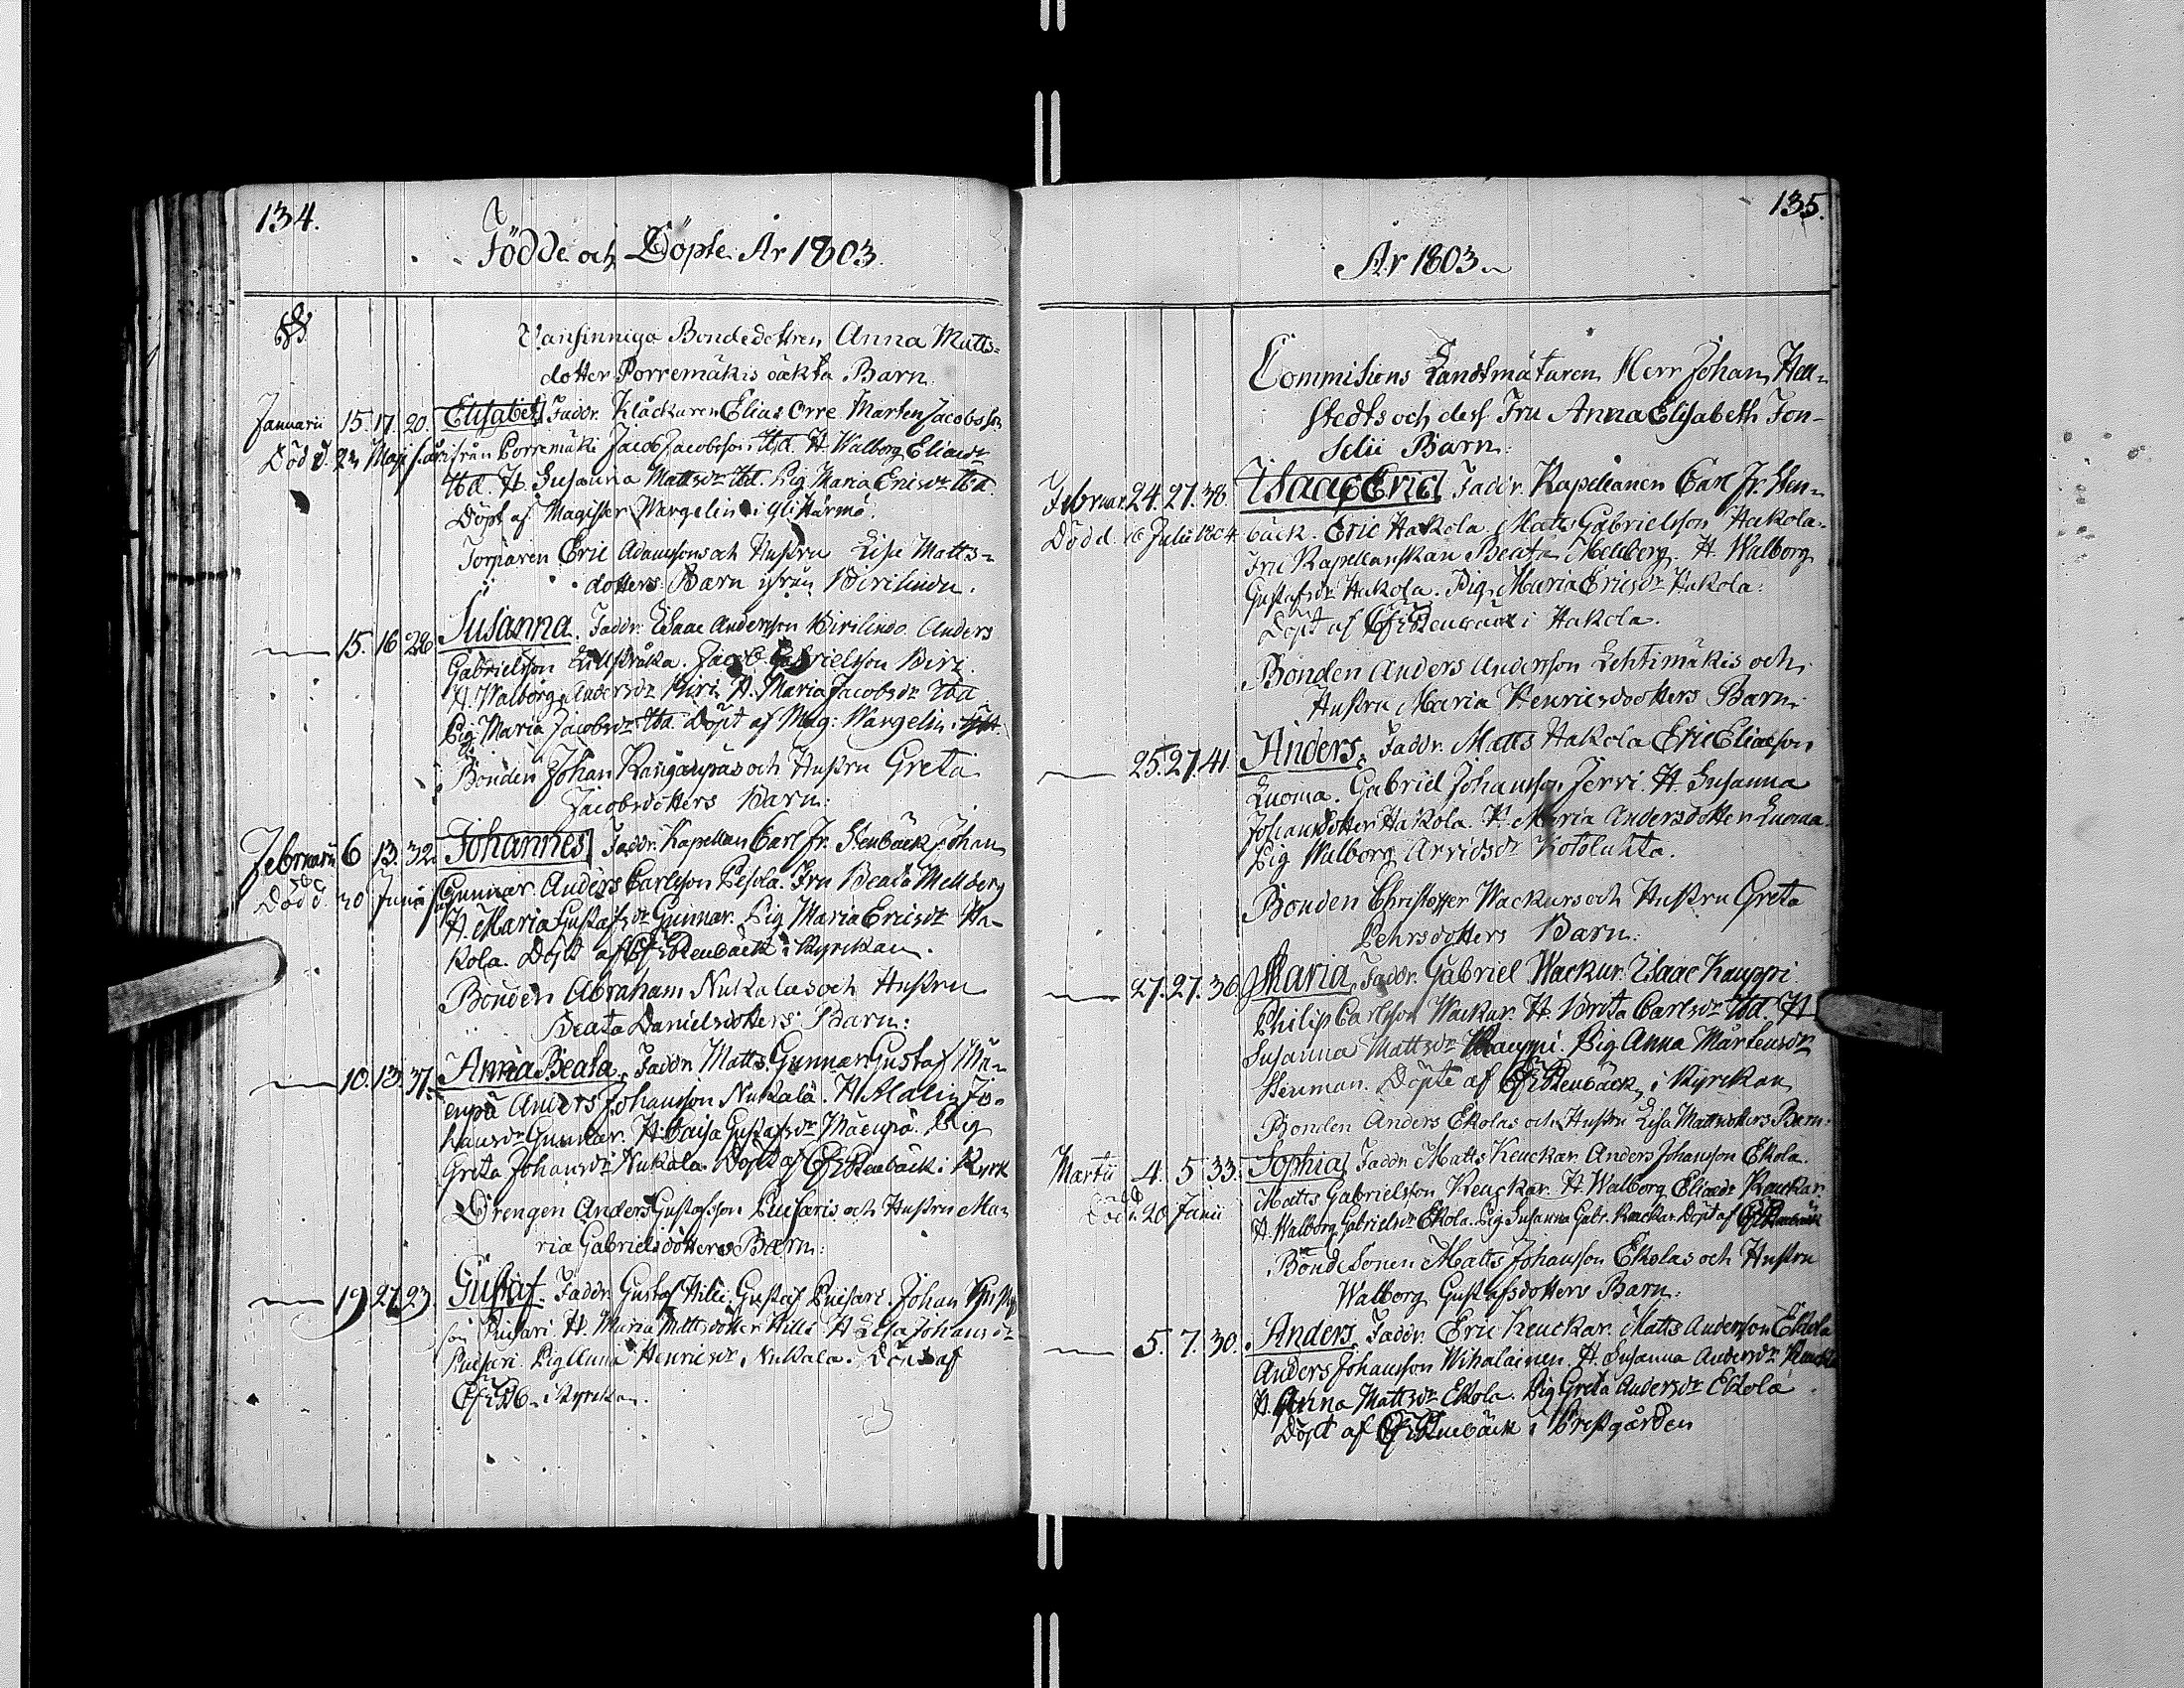 134.
Födde och Döpte År 1803.
Vansinniga Bondedottren Anna Matts-
dotter Porremäkis oäkta Barn.
Januarii 15. 17. 20. Elisabet Faddr. Klåckaren Elias Orre Mårten Jacobsson
Död d. 23 Maji ifrån Porremäki Jacob Jacobsson Ibd. H. Walborg Eliasdr
Ibd. H. Susanna Mattsdr Ibd. Pig. Maria Ericsdr Ibd.
Döpt af Magister Wargelin i
Torparen Eric Adamssons och Hustru Lisa Matts-
dotters Barn ifrån Birilindu.
15. 16 28 Susanna. Faddr. Isaac Andersson Birilindo Anders
Gabrielsson Lillstråka. Jacob Gabrielsson Biri.
H. Walborg Andersdr Biri. H. Maria Jacobsdr Ibd
Pig. Maria Jacobsdr Ibd. Döpt af Mag: Wargelin.
Bonden Johan Kangaspäs och Hustru Greta
Jacobsdotters Barn:
Februarii 6 13. 32. Johannes Faddr. Kapellan Carl Fr. Stenbäck, Johan
Död d. 20 Junii Gunnar. Anders Carlsson Pesola. Fru Beata Mellberg
H. Maria Gustafsdr Gunnar. Pig Maria Ericsdr Ha-
kola. Döpt af CFr Stenbäck i Kyrckan.
Bonden Abraham Nukalas och Hustru
Beata Danielsdotters Barn:
10. 13. 37. Anna Beata. Faddr. Matts Gunnar Gustaf Mä-
enpä Anders Johansson Nukala. H. Malin Jo-
hansdr Gunnar. H. Caisa Gustafsdr Mäenpä. Pig
Greta Johansdr Nukala. Döpt af CFr Stenbäck i Kyrk
Drengen Anders Gustafsson Luisaris och Hustru Ma-
ria Gabrielsdotters Barn:
19 27. 23. Gustaf. Faddr. Gustaf Hilli. Gustaf Puisari. Johan
son Puisari. H. Maria Mattsdotter Hilli H. Lisa Johansdr
Puisari. Pig Anna Henricsdr Nukala. Döpt af
CFr Stb. i Kyrckan.
135.
År 1803.
Commissions Landtmätaren Herr Johan Hell-
stedts och dess Fru Anna Elisabeth Fon-
selii Barn:
Februar. 24. 27. 38. Isaac Eric Faddr. Kapellanen Carl Fr. Sten-
Död d. 16 Julii 1804 bäck. Eric Hakola. Matts Gabrielsson Hakola.
Fru Kapellanskan Beata Mellberg. H. Walborg
Gustafsdr Hakola. Pig. Maria Ericsdr Hakola:
Döpt af CFr Stenbäck i Hakola.
Bonden Anders Andersson Lehtimäkis och
Hustru Maria Henricsdotters Barn:
25. 27. 41. Anders. Faddr. Matts Hakola Eric Eliasson
Luoma. Gabriel Johansson Jervi. H. Susanna
Johansdotter Hakola. H. Maria Andersdotter Luoma.
Pig Walborg Arvidsdr Kotoluhta.
Bonden Christoffer Wackurs och Hustru Greta
Pehrsdotters Barn:
27. 27. 36. Maria. Faddr. Gabriel Wackur. Isaac Kauppi
Philip Carlsson Wackur. H. Brita Carlsdr Ibd. H.
Susanna Mattsdr Kauppi. Pig Anna Mårtensdr
Stenman. Döpte af CFr Stenbäck i Kyrckan
Bonden Anders Ekolas och Hustru Lisa Mattsdotters Barn:
Martii 4. 5. 33. Sophia Faddr. Matts Keuckar Anders Johansson Ekola.
Matts Gabrielsson Keuckar. H. Walborg Eliaedr Keuckar.
Död d. 20 Junii H. Walborg Gabrielsdr Ekola. Pig Susanna Gabr. Keuckar. Döpt af CFr Stenbäck
BondeSonen Matts Johansson Ekolas och Hustru
Walborg Gustafsdotters Barn:
5. 7. 30. Anders. Faddr. Eric Keuckar. Matts Andersson Ekola
Anders Johansson Wihalainen. H. Susanna Andersdr
H. Anna Mattsdr Ekola. Pig Greta Andersdr Ekola.
Döpt af CFr Stenbäck i Prestgården